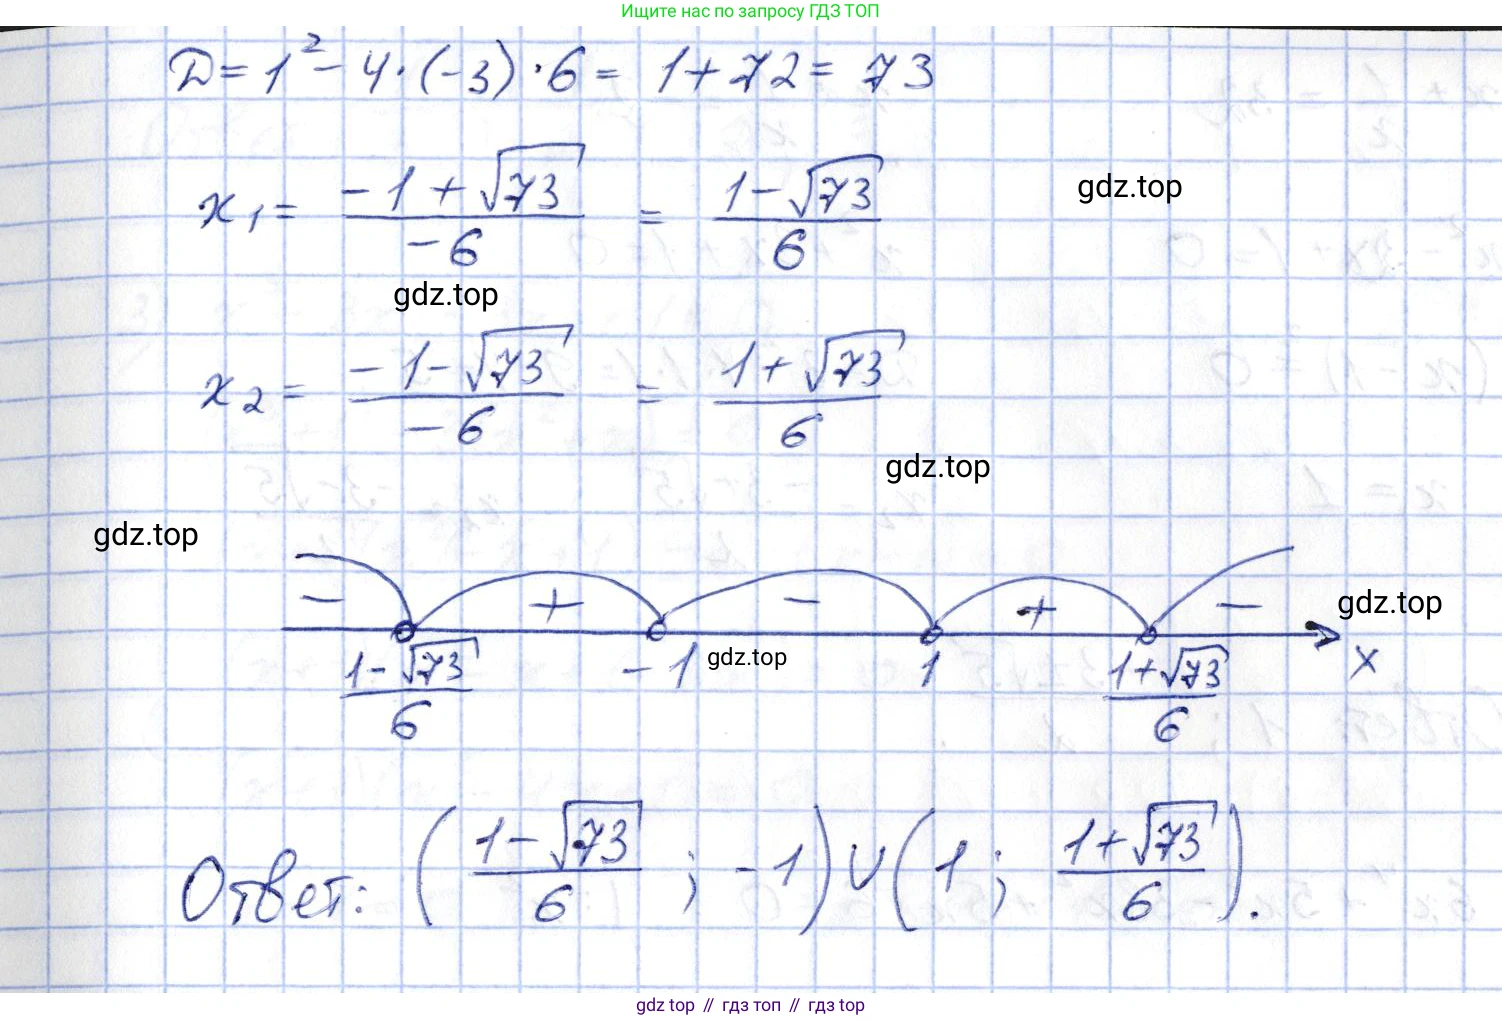 Ищите нас по запросу ГДЗ ТОП
D = 1² - 4 · (-3) · 6 = 1 + 72 = 73
x₁ = (-1 + √73)/(-6) = (1 - √73)/6
gdz.top
gdz.top
x₂ = (-1 - √73)/(-6) = (1 + √73)/6
gdz.top
gdz.top
− + − + −
gdz.top
(1 - √73)/6 -1 1 (1 + √73)/6 x
gdz.top
Ответ: ((1 - √73)/6 ; -1) ∪ (1 ; (1 + √73)/6).
gdz top // гдз топ // гдз top